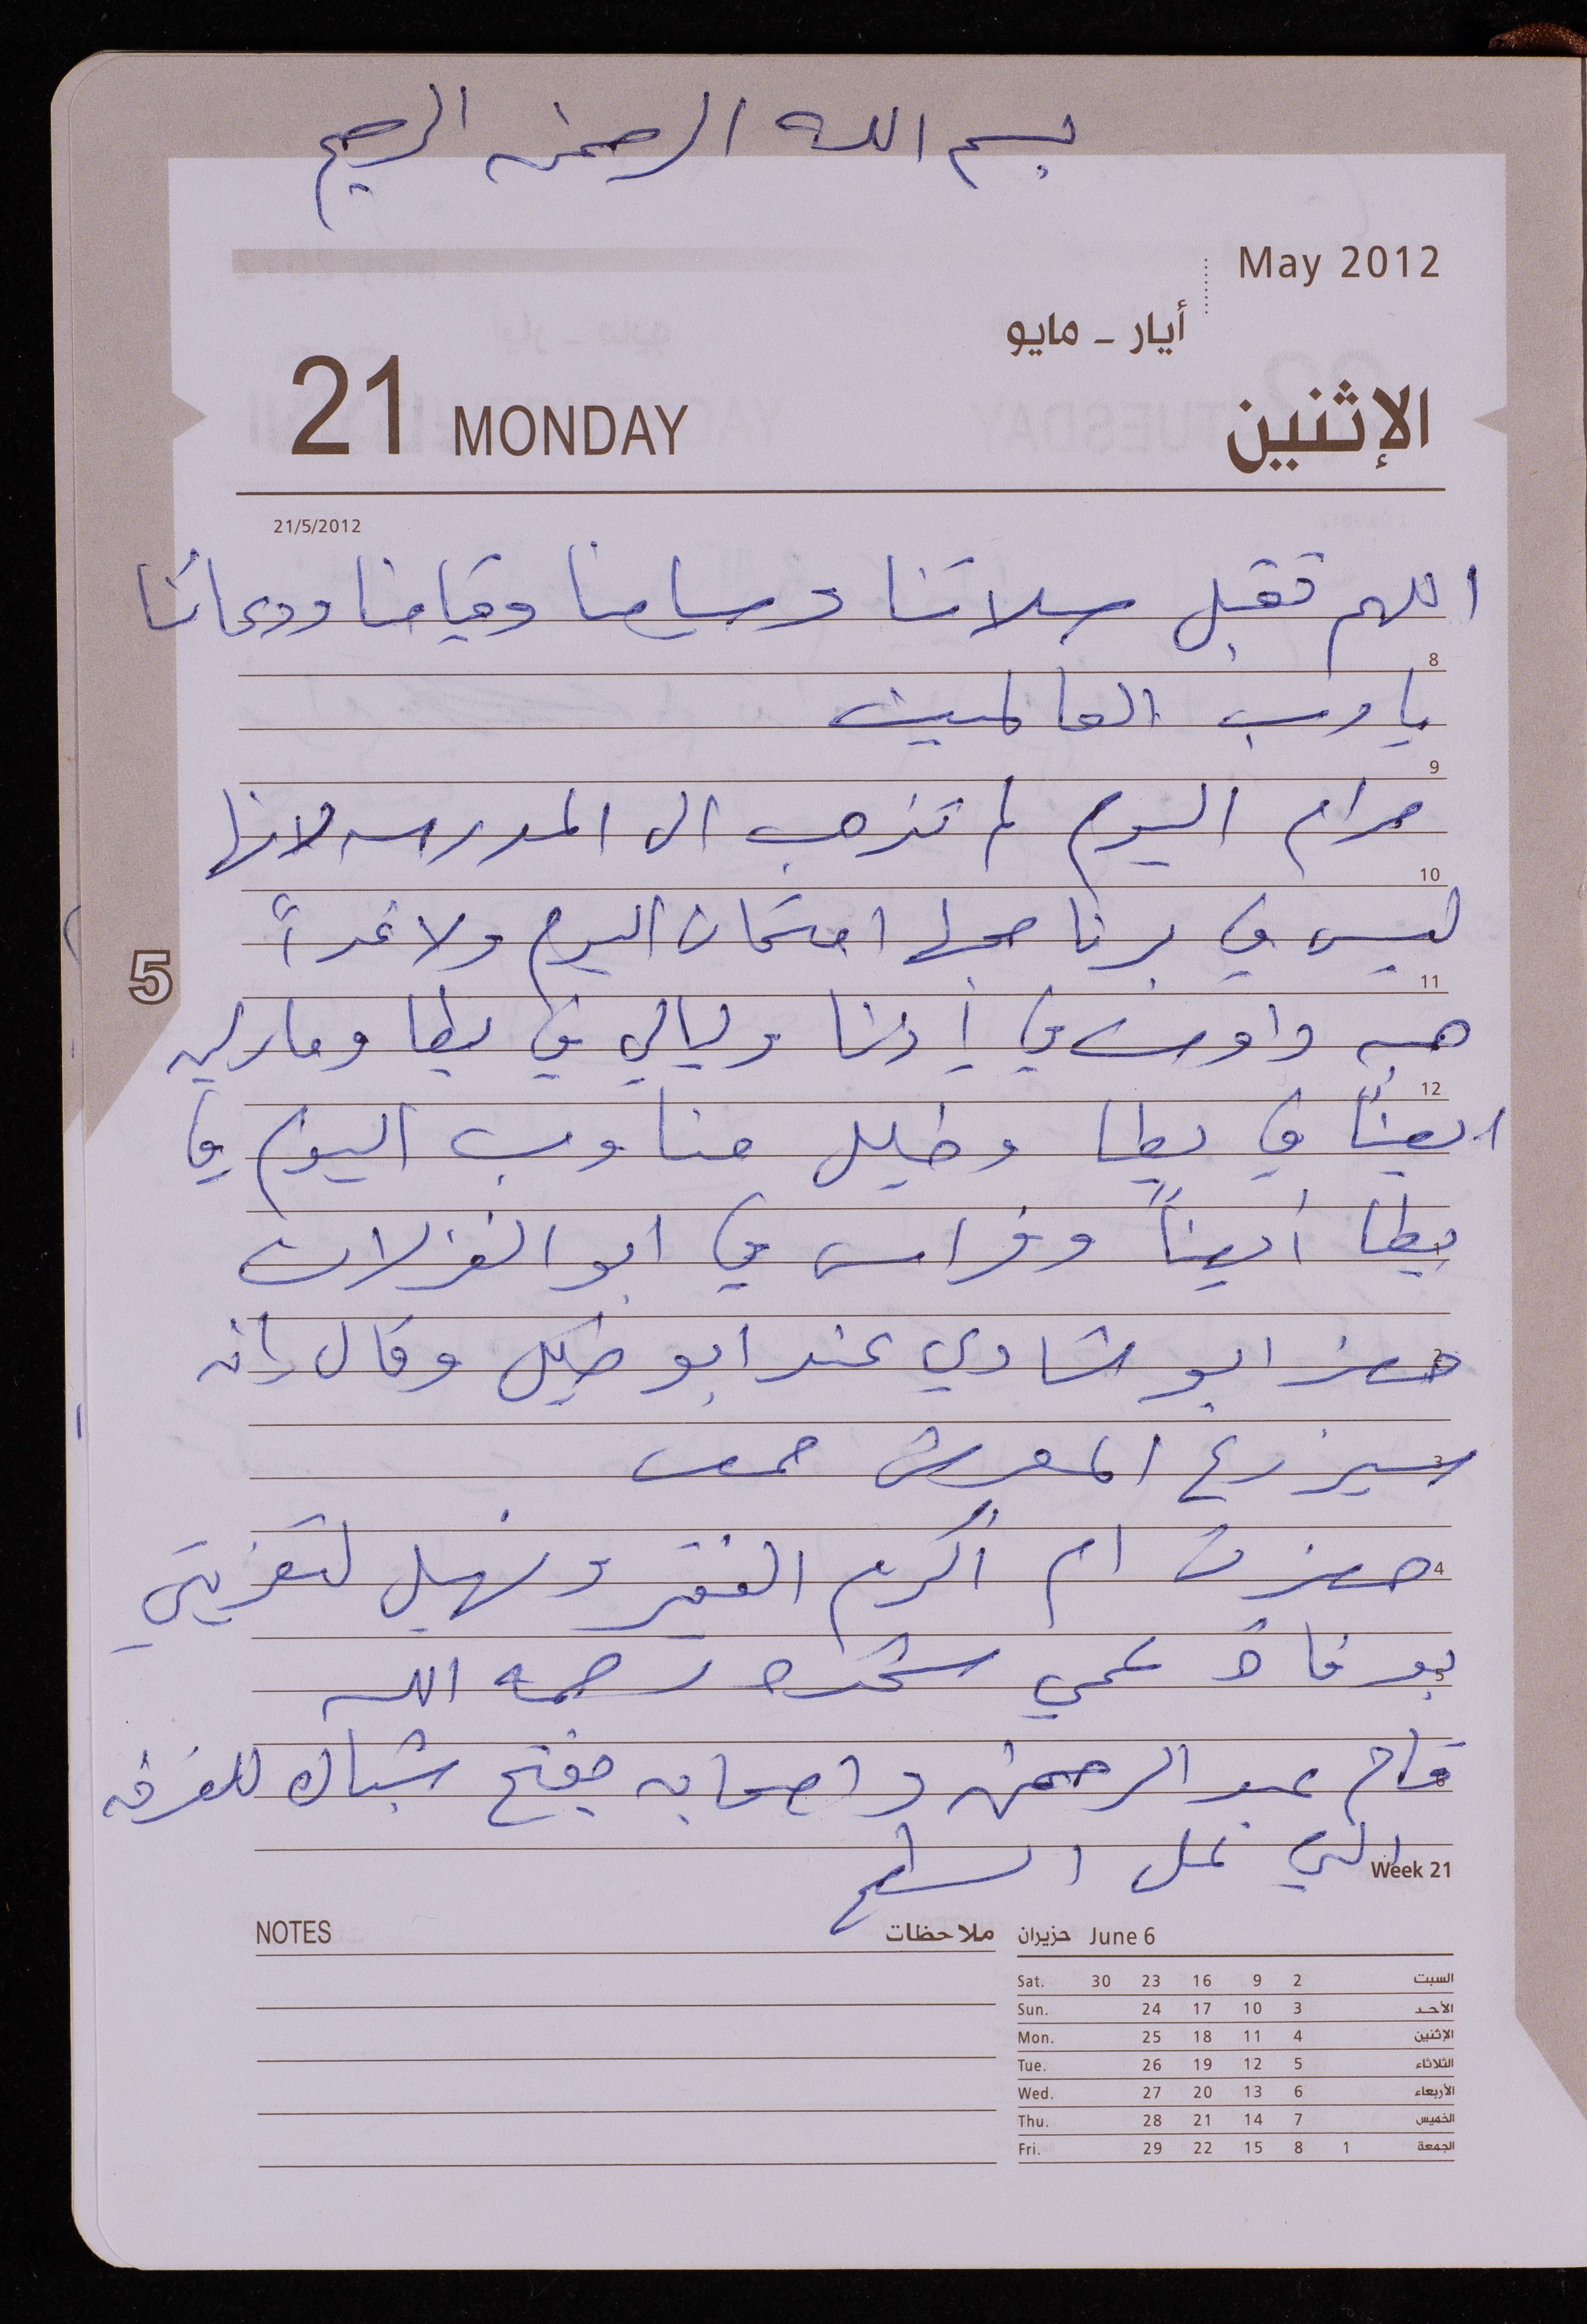 بسم الله الرحمن الرحيم
May 2012
أيار - مايو
21 MONDAY الإثنين
21/5/2012
اللهم تقبل سلاتنا وسيامنا وقيامنا ودعائنا
8
يا رب العالمين
9
مرام اليوم لم تذهب الى المدرسه لانها
10
ليس في برنامجها امتحان اليوم ولا غداً
11
هبه واوس في إذنا وليالي في يطا ومارليه
12
ايضاً في يطا وخليل مناوب اليوم في
يطا أيضاً وفراس في ابو الغزلان
حضر ابو شادي عند ابو خليل وقال بانه
سيزرع المعرش
3
حضرت ام أكرم الفقير ونهيل لتعزيتي
4
بوفاة عمي شحده رحمه الله
5
قام عبد الرحمن واصحابه بفتح شباك للغرفه
6
التي على السطح
Week 21
NOTES ملاحظات
June 6 حزيران
Sat. 30 23 16 9 2 السبت
Sun. 24 17 10 3 الأحد
Mon. 25 18 11 4 الإثنين
Tue. 26 19 12 5 الثلاثاء
Wed. 27 20 13 6 الأربعاء
Thu. 28 21 14 7 الخميس
Fri. 29 22 15 8 1 الجمعة
5